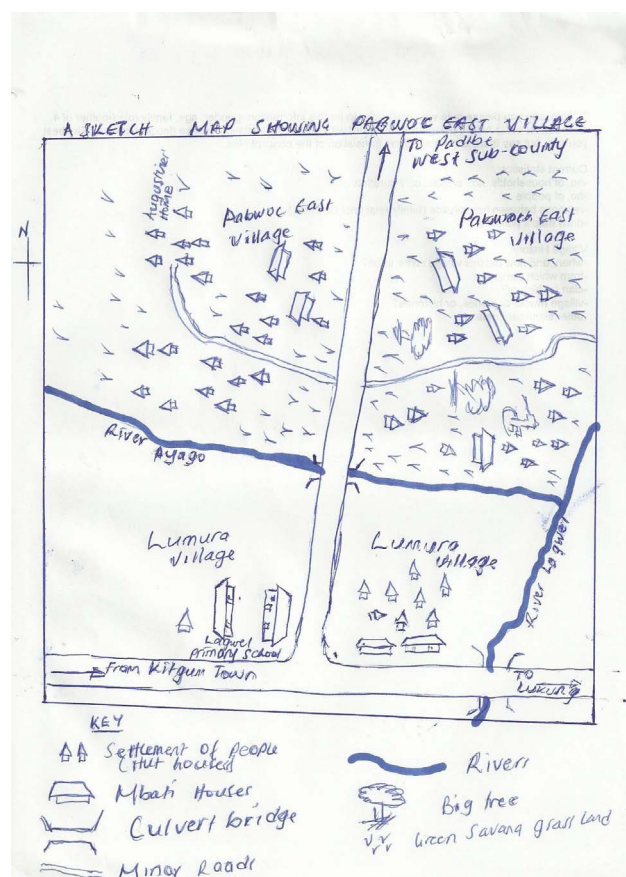 A SKETCH MAP SHOWING PABWOC EAST VILLAGE
To Padibe
West Sub-County
N
Augustine
Home
Pabwoc East
Village
Pabwoch East
Village
River
Ayago
Lumura
Village
Lumura
Village
River Lagwel
Lagwel
primary School
From Kitgum Town
To
Lukung
KEY
Settlement of people
(Hut houses)
Mbati Houses
Culvert bridge
Minor Roads
Rivers
Big tree
Green Savana grass land